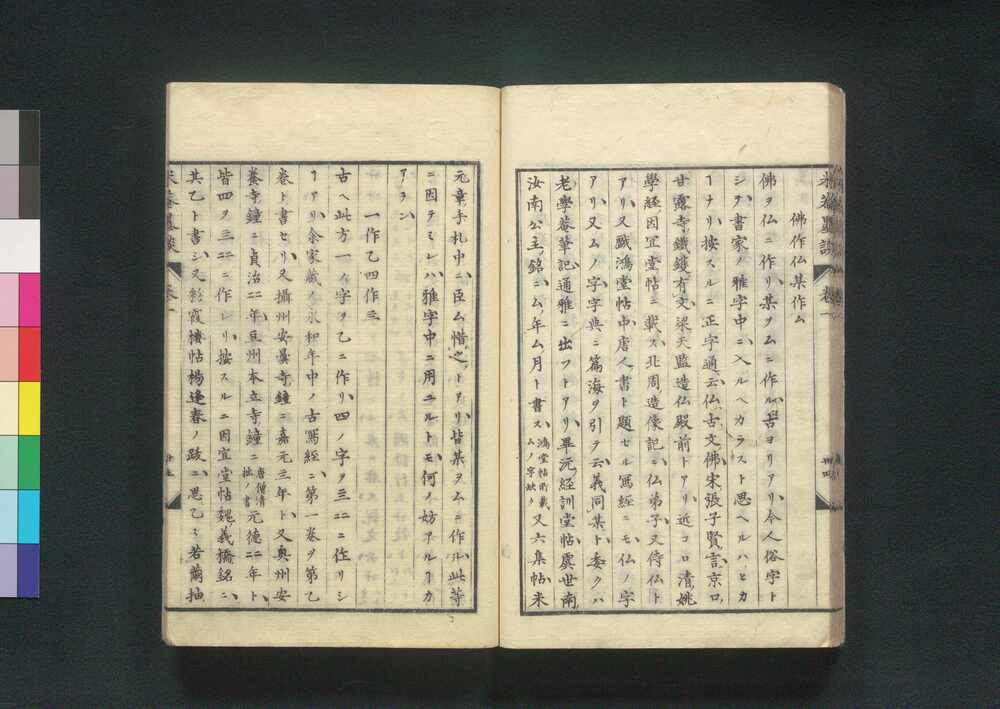 米菴墨談 卷一
佛作仏某作ム
佛ヲ仏ニ作リ某ヲムニ作ル古ヨリアリ今人俗字ト
シテ書家ノ雅字中ニ入ルヘカラスト思ヘルハヒカ
ヿナリ按スルニ正字通云仏古文佛宋張子賢言京口
甘露寺鐵鑊有文梁天監造仏殿前トアリ近コロ清姚
學經因宜堂帖ニ載ス北周造像記ニ仏弟子又侍仏ト
アリ又戲鴻堂帖中唐人書ト題セル寫經ニモ仏ノ字
アリ又ムノ字字典ニ篇海ヲ引テ云義同某ト委クハ
老學菴筆記通雅ニ出フトアリ畢沅經訓堂帖虞世南
汝南公主銘ニム年ム月ト書ス鴻堂帖所載ムノ字缺ク又六集帖米
元章手札中ニ臣ム惜之トアリ皆某ヲムニ作ル此等
ニ因テミレハ雅字中ニ用ユルトモ何ノ妨アルヿカ
アラン
一作乙四作亖
古ヘ此方一ノ字ヲ乙ニ作リ四ノ字ヲ亖ニ作リシ
ヿアリ余家藏ノ永和年中ノ古寫經ニ第一卷ヲ第乙
卷ト書セリ又攝州安曇寺鐘ニ嘉元三年ト又奥州安
養寺鐘ニ貞治二二年豆州本立寺鐘ニ唐僧清拙ノ書元德二二年ト
皆四ヲ亖ニ作レリ按スルニ因宜堂帖魏義橋銘ニ
其乙ト書シ又彩霞樓帖楊逢春ノ跋ニ思乙ミ若繭抽
米菴墨談 卷一